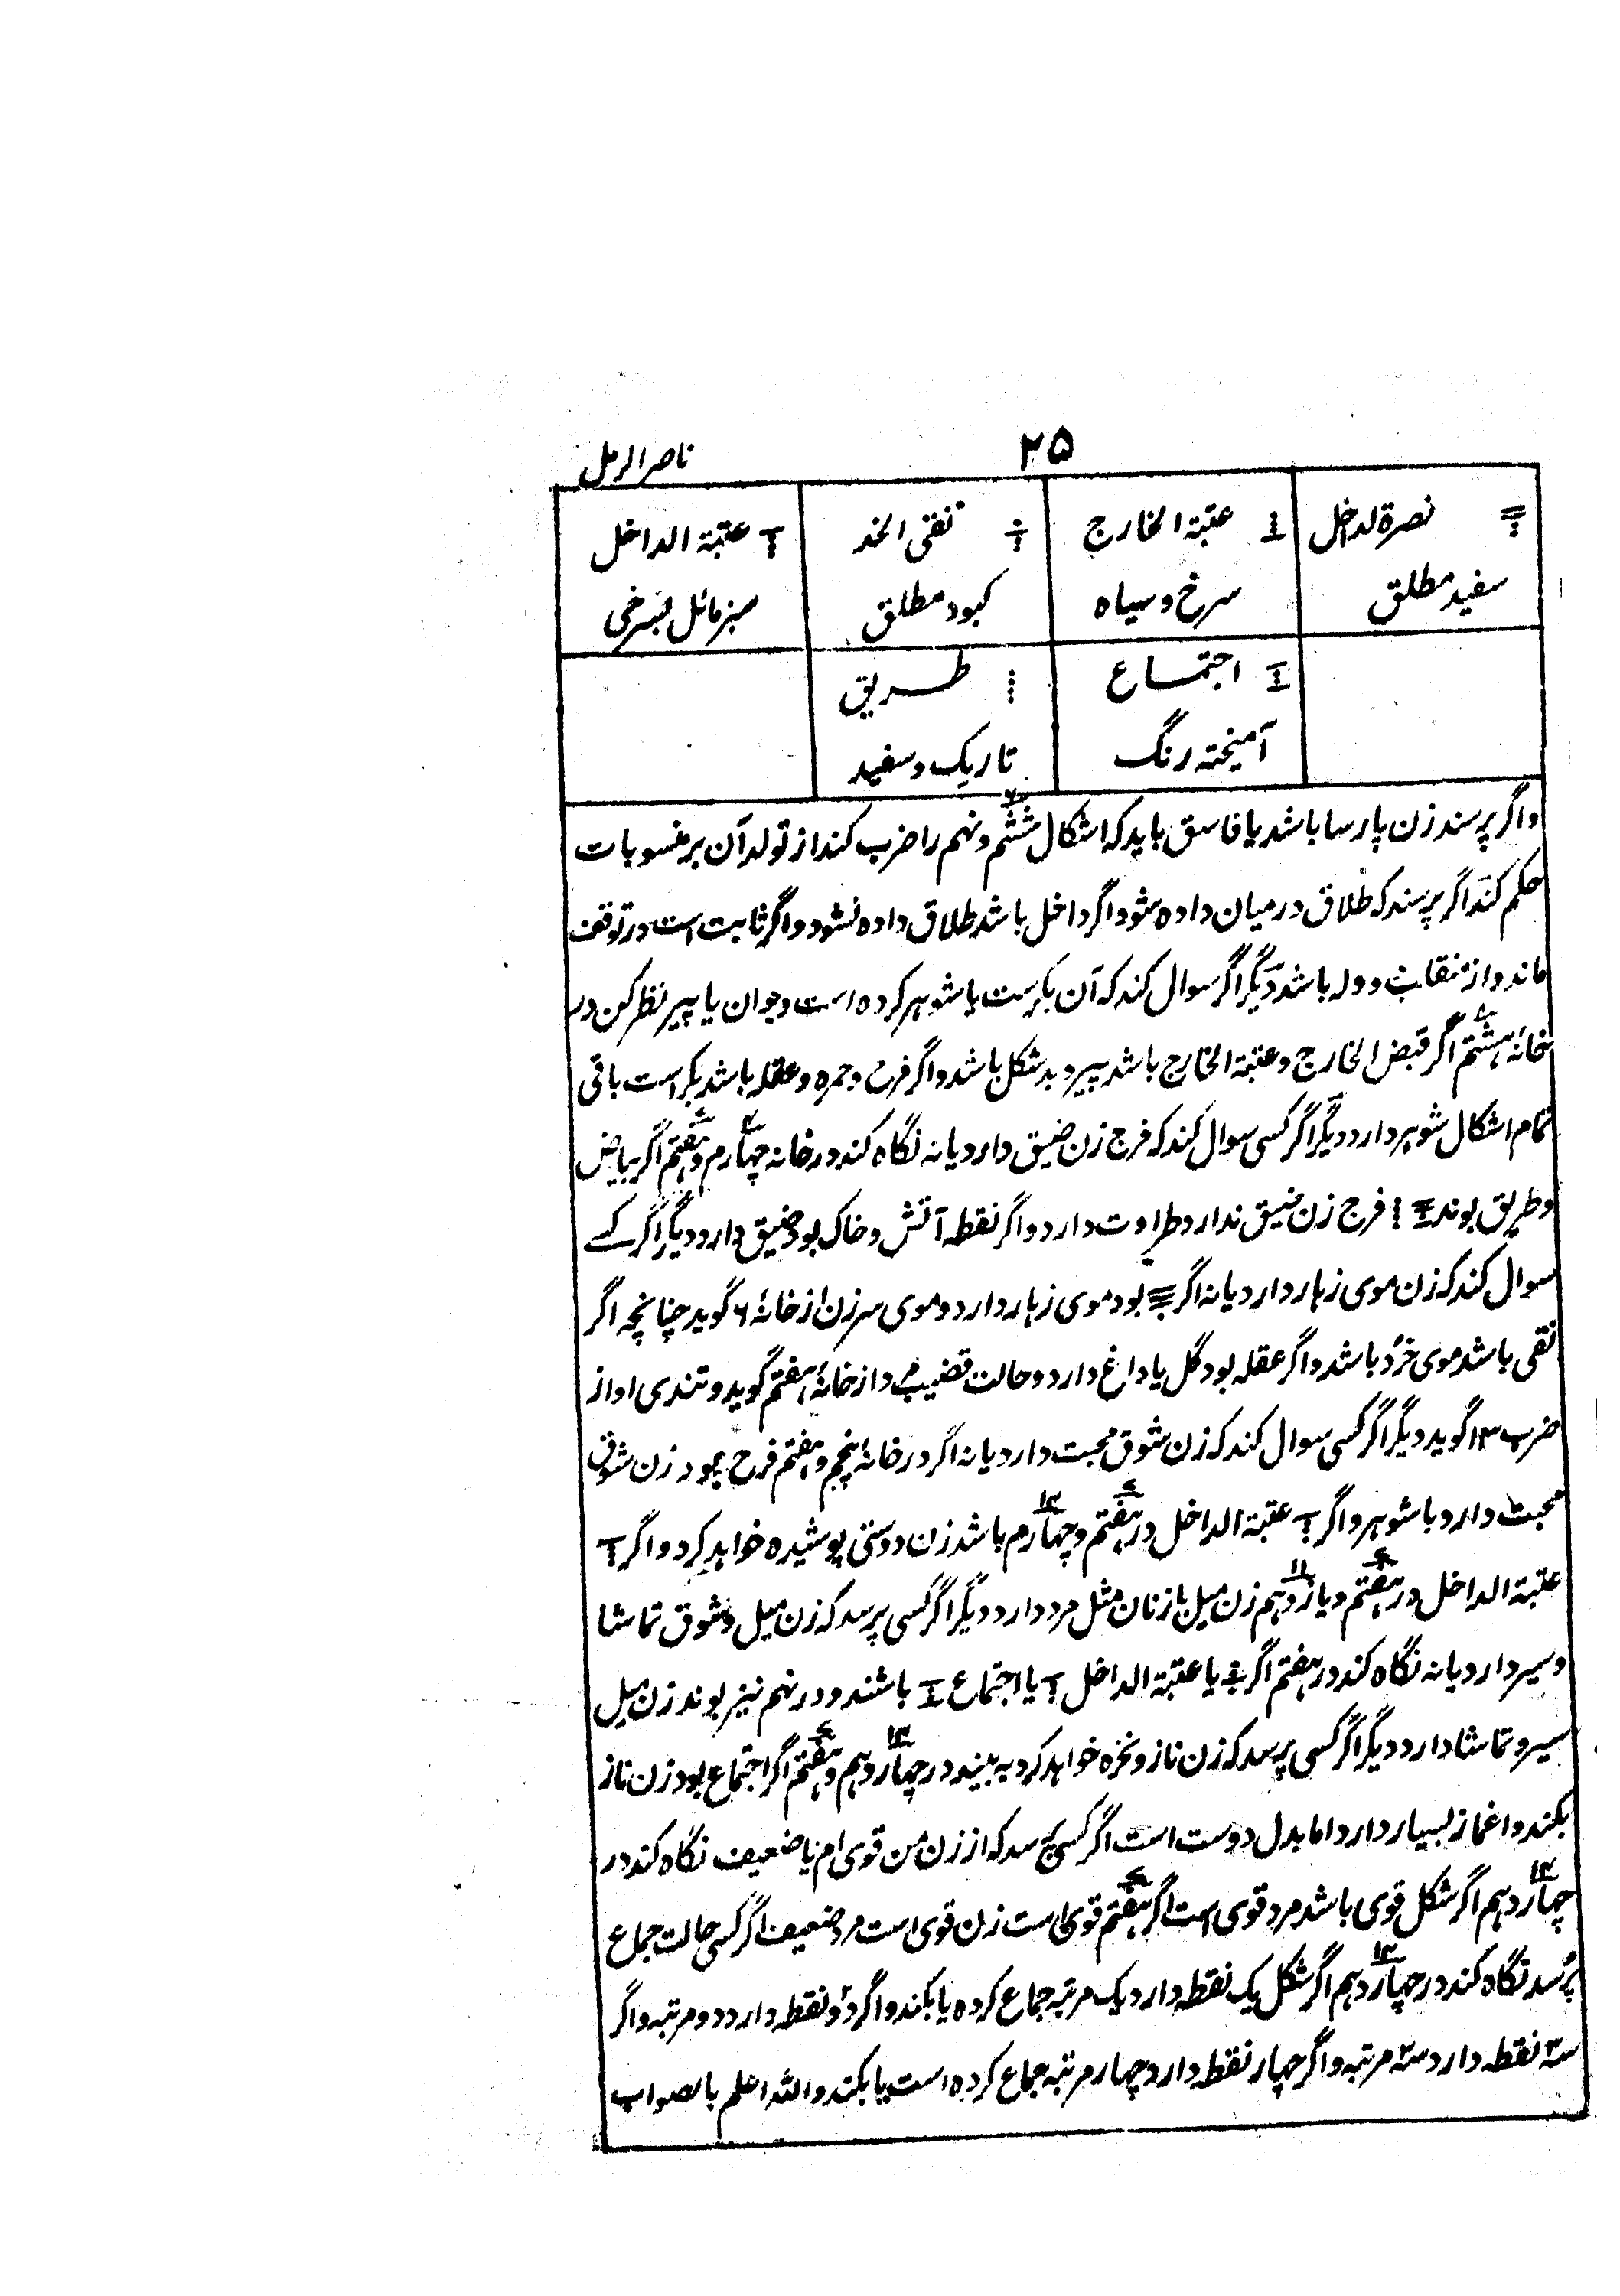 ۲۵
ناصر الرمل
نصرة لداخل
عتبة الخارج
نقی الخد
عتبة الداخل
سفید مطلق
سرخ و سیاه
کبود مطلق
سبز مائل بسرخی
اجتماع
طریق
آمیخته رنگ
تاریک و سفید
و اگر پرسند زن پارسا باشد یا فاسق باید که اشکال ششم و نهم را ضرب کند از تولد آن بر منسوبات
حکم کند اگر پرسند که طلاق درمیان داده شود اگر داخل باشد طلاق داده نشود و اگر ثابت است در توقف
ماند و از منقلب دوله باشد دیگر اگر سوال کند که آن بکرست یا شوهر کرده است و جوان یا پیر نظر کن در
خانهٔ هشتم اگر قبض الخارج و عتبة الخارج باشد پیر و بد شکل باشد و اگر فرح و حمره و عقله باشد بکر است باقی
تمام اشکال شوهر دارد دیگر اگر کسی سوال کند که فرج زن ضیق دارد یا نه نگاه کند در خانه چهارم و هفتم اگر بیاض
و طریق بوند فرج زن ضیق ندارد طراوت دارد و اگر نقطه آتش و خاک بود ضیق دارد دیگر اگر کسے
سوال کند که زن موی زهار دارد یا نه اگر بود موی زهار دارد و موی سر زن از خانهٔ ۶ گوید چنانچه اگر
نقی باشد موی خرد باشد و اگر عقله بود گل یا داغ دارد و حالت قضیب مرد از خانهٔ هفتم گوید و تندی او از
ضرب ۱۳ گوید دیگر اگر کسی سوال کند که زن شوق محبت دارد یا نه اگر در خانهٔ پنجم و هفتم فرح بود زن شوق
محبت دارد با شوهر و اگر عتبة الداخل در هفتم و چهارم باشد زن دوستی پوشیده خواهد کرد و اگر
عتبة الداخل در هفتم و یازدهم زن میل با زنان مثل مرد دارد دیگر اگر کسی پرسد که زن میل و شوق تماشا
و سیر دارد یا نه نگاه کند در هفتم اگر یا عتبة الداخل یا اجتماع باشند و در نهم نیز بوند زن میل
سیر و تماشا دارد دیگر اگر کسی پرسد که زن ناز و نخره خواهد کرد به بیند در چهاردهم و هفتم اگر اجتماع بود زن ناز
بکند و اغماز بسیار دارد اما بدل دوست است اگر کسی پرسد که از زن من قوی ام یا ضعیف نگاه کند در
چهاردهم اگر شکل قوی باشد مرد قوی است اگر هفتم قوی است زن قوی است مرد ضعیف اگر کسی حالت جماع
پرسد نگاه کند در چهاردهم اگر شکل یک نقطه دارد یک مرتبه جماع کرده یا بکند و اگر دو نقطه دارد دو مرتبه و اگر
سه نقطه دارد سه مرتبه و اگر چهار نقطه دارد چهار مرتبه جماع کرده است یا بکند والله اعلم بالصواب